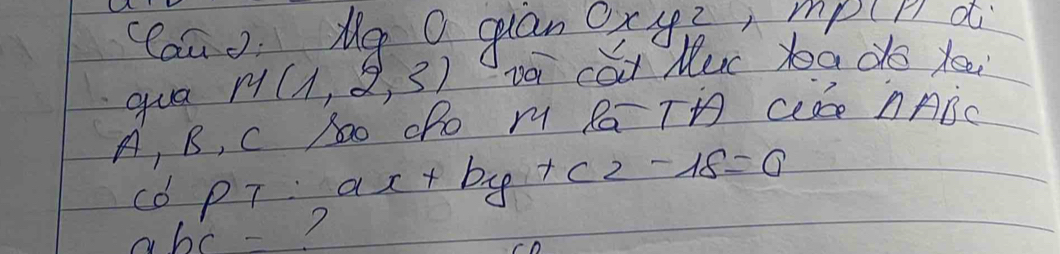 Câu 2: Ng 0 gian Oxyz, mp(P) đi
qua M(1, 2, 3) và cắt trục tọa độ tại
A, B, C sao cho M là TĐ của ΔABC
có PT: ax + by + cz - 18 = 0
abc = ?